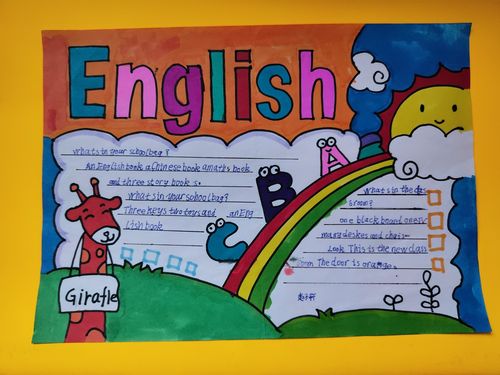 English
whats in your school bag?
An English book a Chinese book a maths book
and three story books.
what's in your school bag?
Three keys two toys and an Eng
lish book
A
B
C
Giraffe
what's in the clas
sroom?
one black board
many deskes and chais
Look This is the new class
room The door is orange.